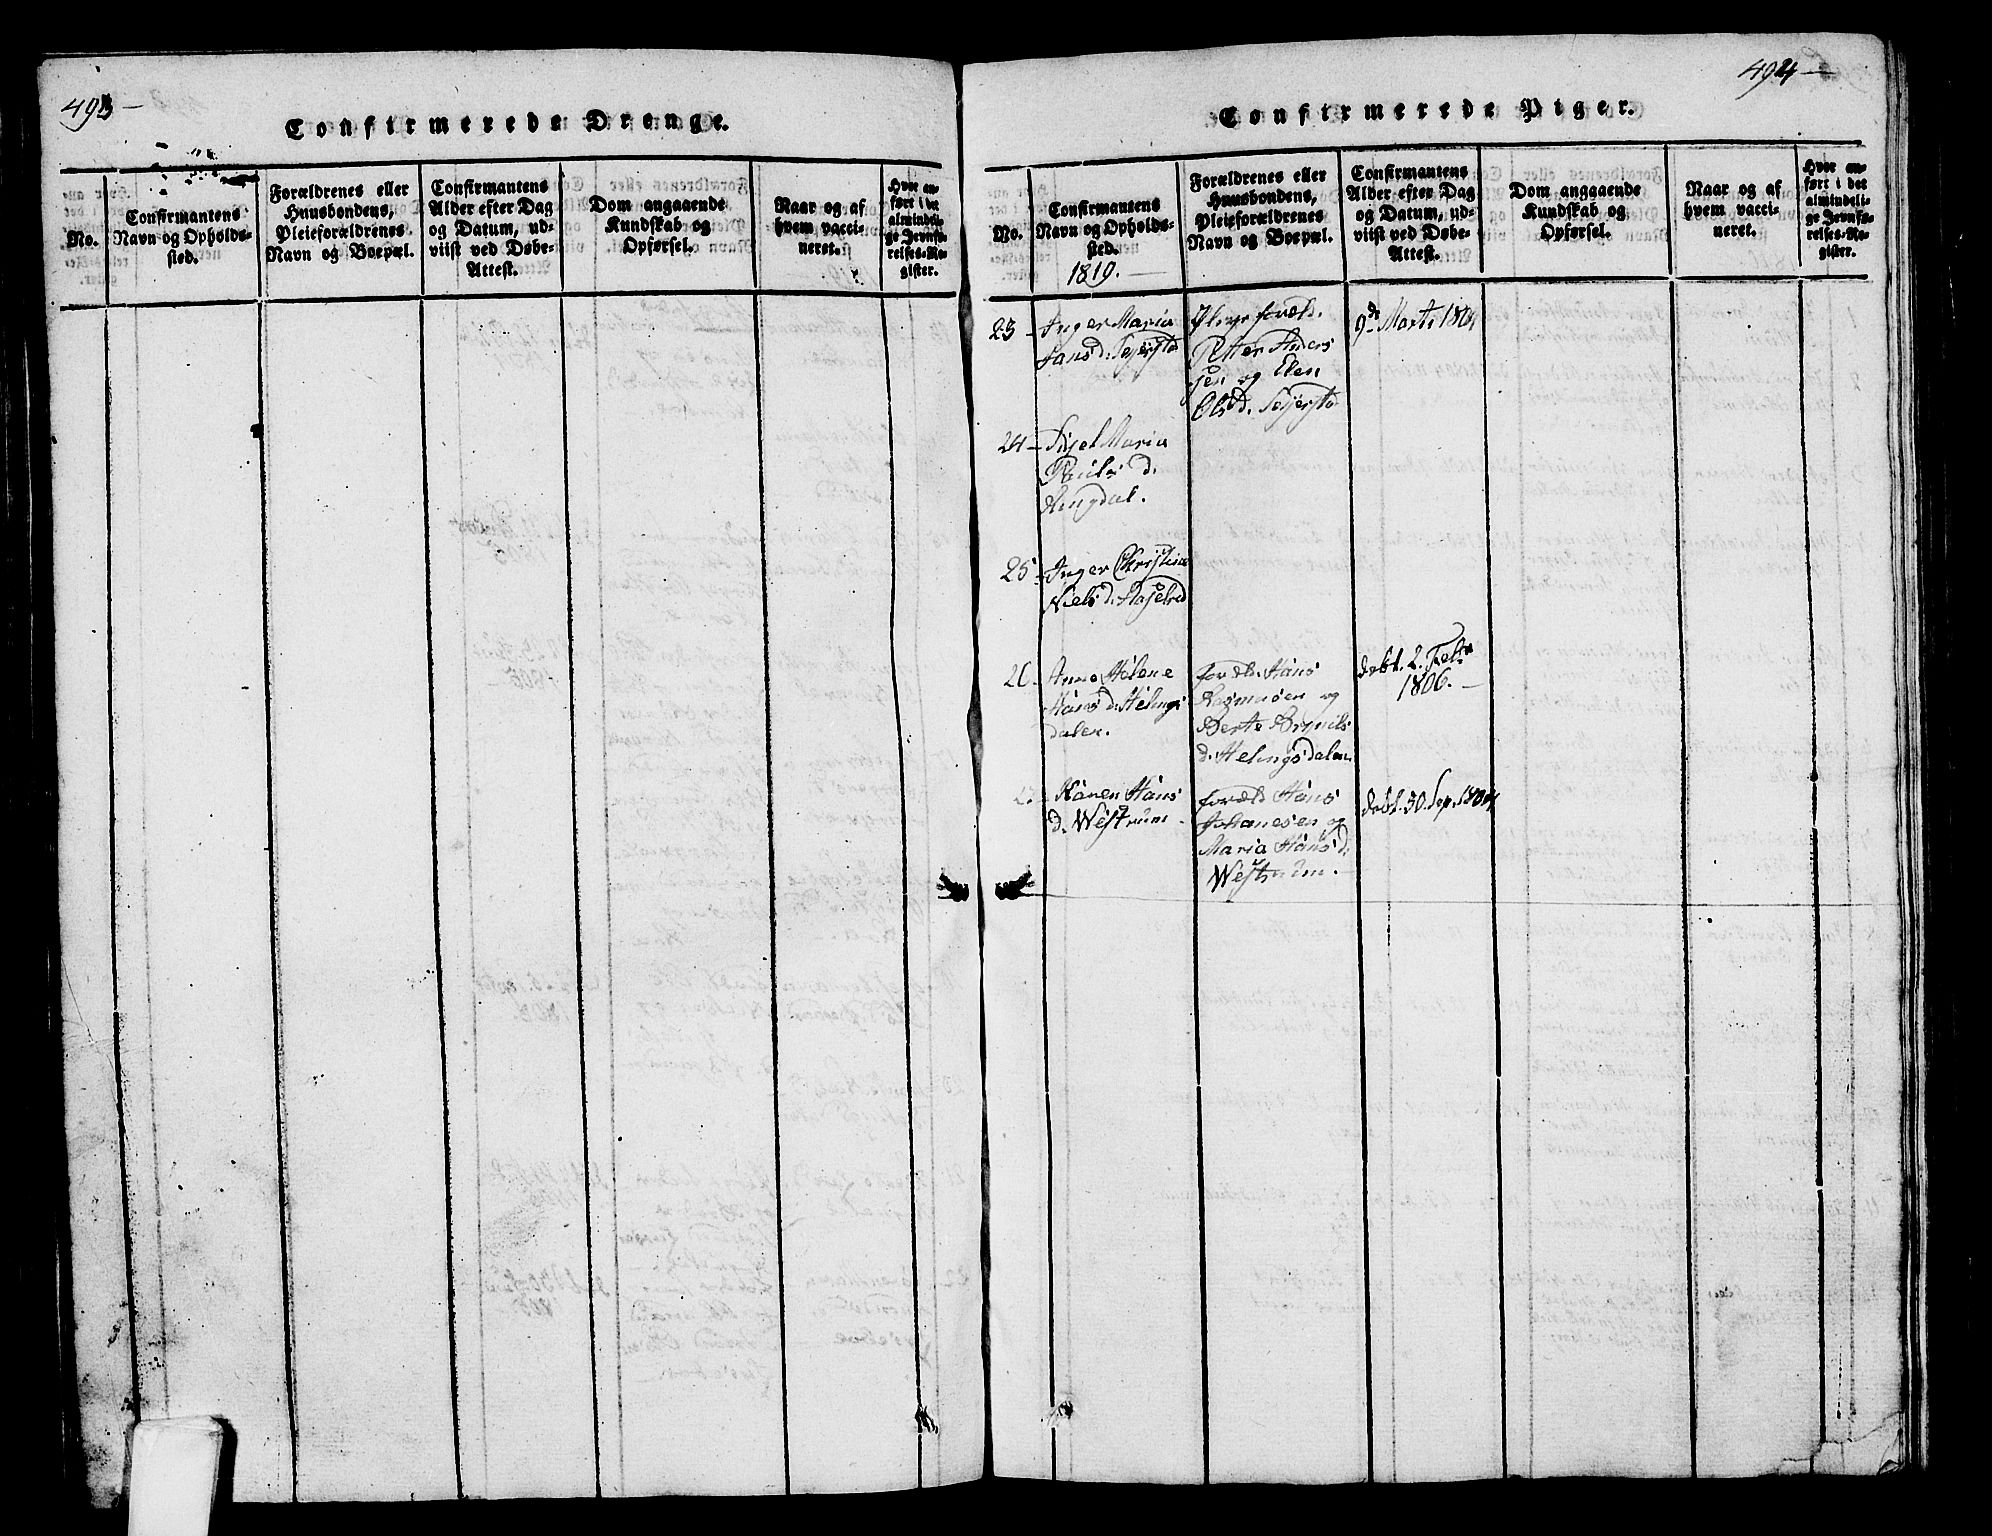 493 —
Confirmerede Drenge.
No.
Confirmantens
Navn og Opholds-
sted.
Forældrenes eller
Huusbondens,
Pleieforældrenes
Navn og Boepæl.
Confirmantens
Alder efter Dag
og Datum, ud-
viist ved Døbe-
Attest.
Dom angaaende
Kundskab og
Opførsel.
Naar og af
hvem vacci-
neret.
Hvor an-
ført i det
almindeli-
ge Jevnfø-
relses-Re-
gister.
494 —
Confirmerede Piger.
No.
Confirmantens
Navn og Opholds-
sted.
1819. —
Forældrenes eller
Huusbondens,
Pleieforældrenes
Navn og Boepæl.
Confirmantens
Alder efter Dag
og Datum, ud-
viist ved Døbe-
Attest.
Dom angaaende
Kundskab og
Opførsel.
Naar og af
hvem vacci-
neret.
Hvor an-
ført i det
almindeli-
ge Jevnfø-
relses-Re-
gister.
23 — Inger Maria
Pleje foræld.
Petter Anders
sen og Elen
Ols d.
24 — Maria
d.
25 — Inger Christine
Niels d.
26 — Anne Helene
Hans d. Helings
dalen.
foræld. Hans
Rasmusen og
Berte
d. Helingsdalen
døbt. 2. Febr
1806. —
Karen Hans
d. Westrum —
foræld Hans
Johanesen og
Maria Hans d.
Westrum. —
døbt. 30. Sep. 1804